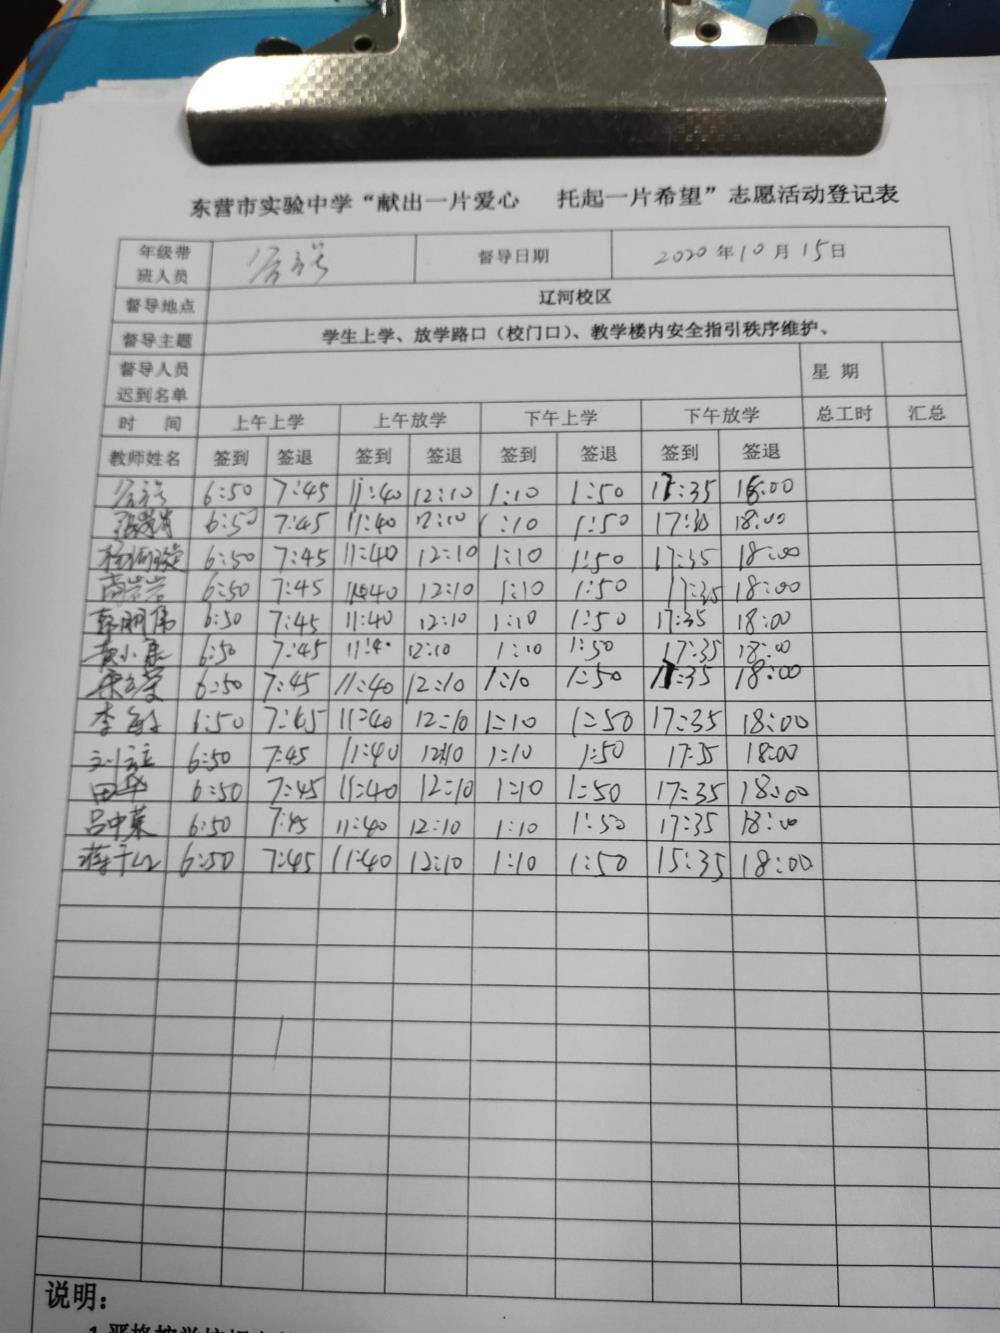 东营市实验中学“献出一片爱心 托起一片希望”志愿活动登记表
年级带班人员 督导日期 2020年10月15日
督导地点 辽河校区
督导主题 学生上学、放学路口（校门口）、教学楼内安全指引秩序维护、
督导人员迟到名单 星 期
时 间 上午上学 上午放学 下午上学 下午放学 总工时 汇总
教师姓名 签到 签退 签到 签退 签到 签退 签到 签退
6:50 7:45 11:40 12:10 1:10 1:50 17:35 18:00
6:50 7:45 11:40 12:10 1:10 1:50 18:00
6:50 7:45 11:40 12:10 1:10 1:50 17:35 18:00
高岩岩 6:50 7:45 11:40 12:10 1:10 1:50 17:35 18:00
郭丽伟 6:50 7:45 11:40 12:10 1:10 1:50 17:35 18:00
6:50 7:45 11:40 12:10 1:10 1:50 17:35 18:00
6:50 7:45 11:40 12:10 1:10 1:50 17:35 18:00
李敏 6:50 7:45 11:40 12:10 1:10 1:50 17:35 18:00
6:50 7:45 11:40 12:10 1:10 1:50 17:35 18:00
田华 6:50 7:45 11:40 12:10 1:10 1:50 17:35 18:00
吕中英 6:50 7:45 11:40 12:10 1:10 1:50 17:35 18:00
6:50 7:45 11:40 12:10 1:10 1:50 15:35 18:00
说明：